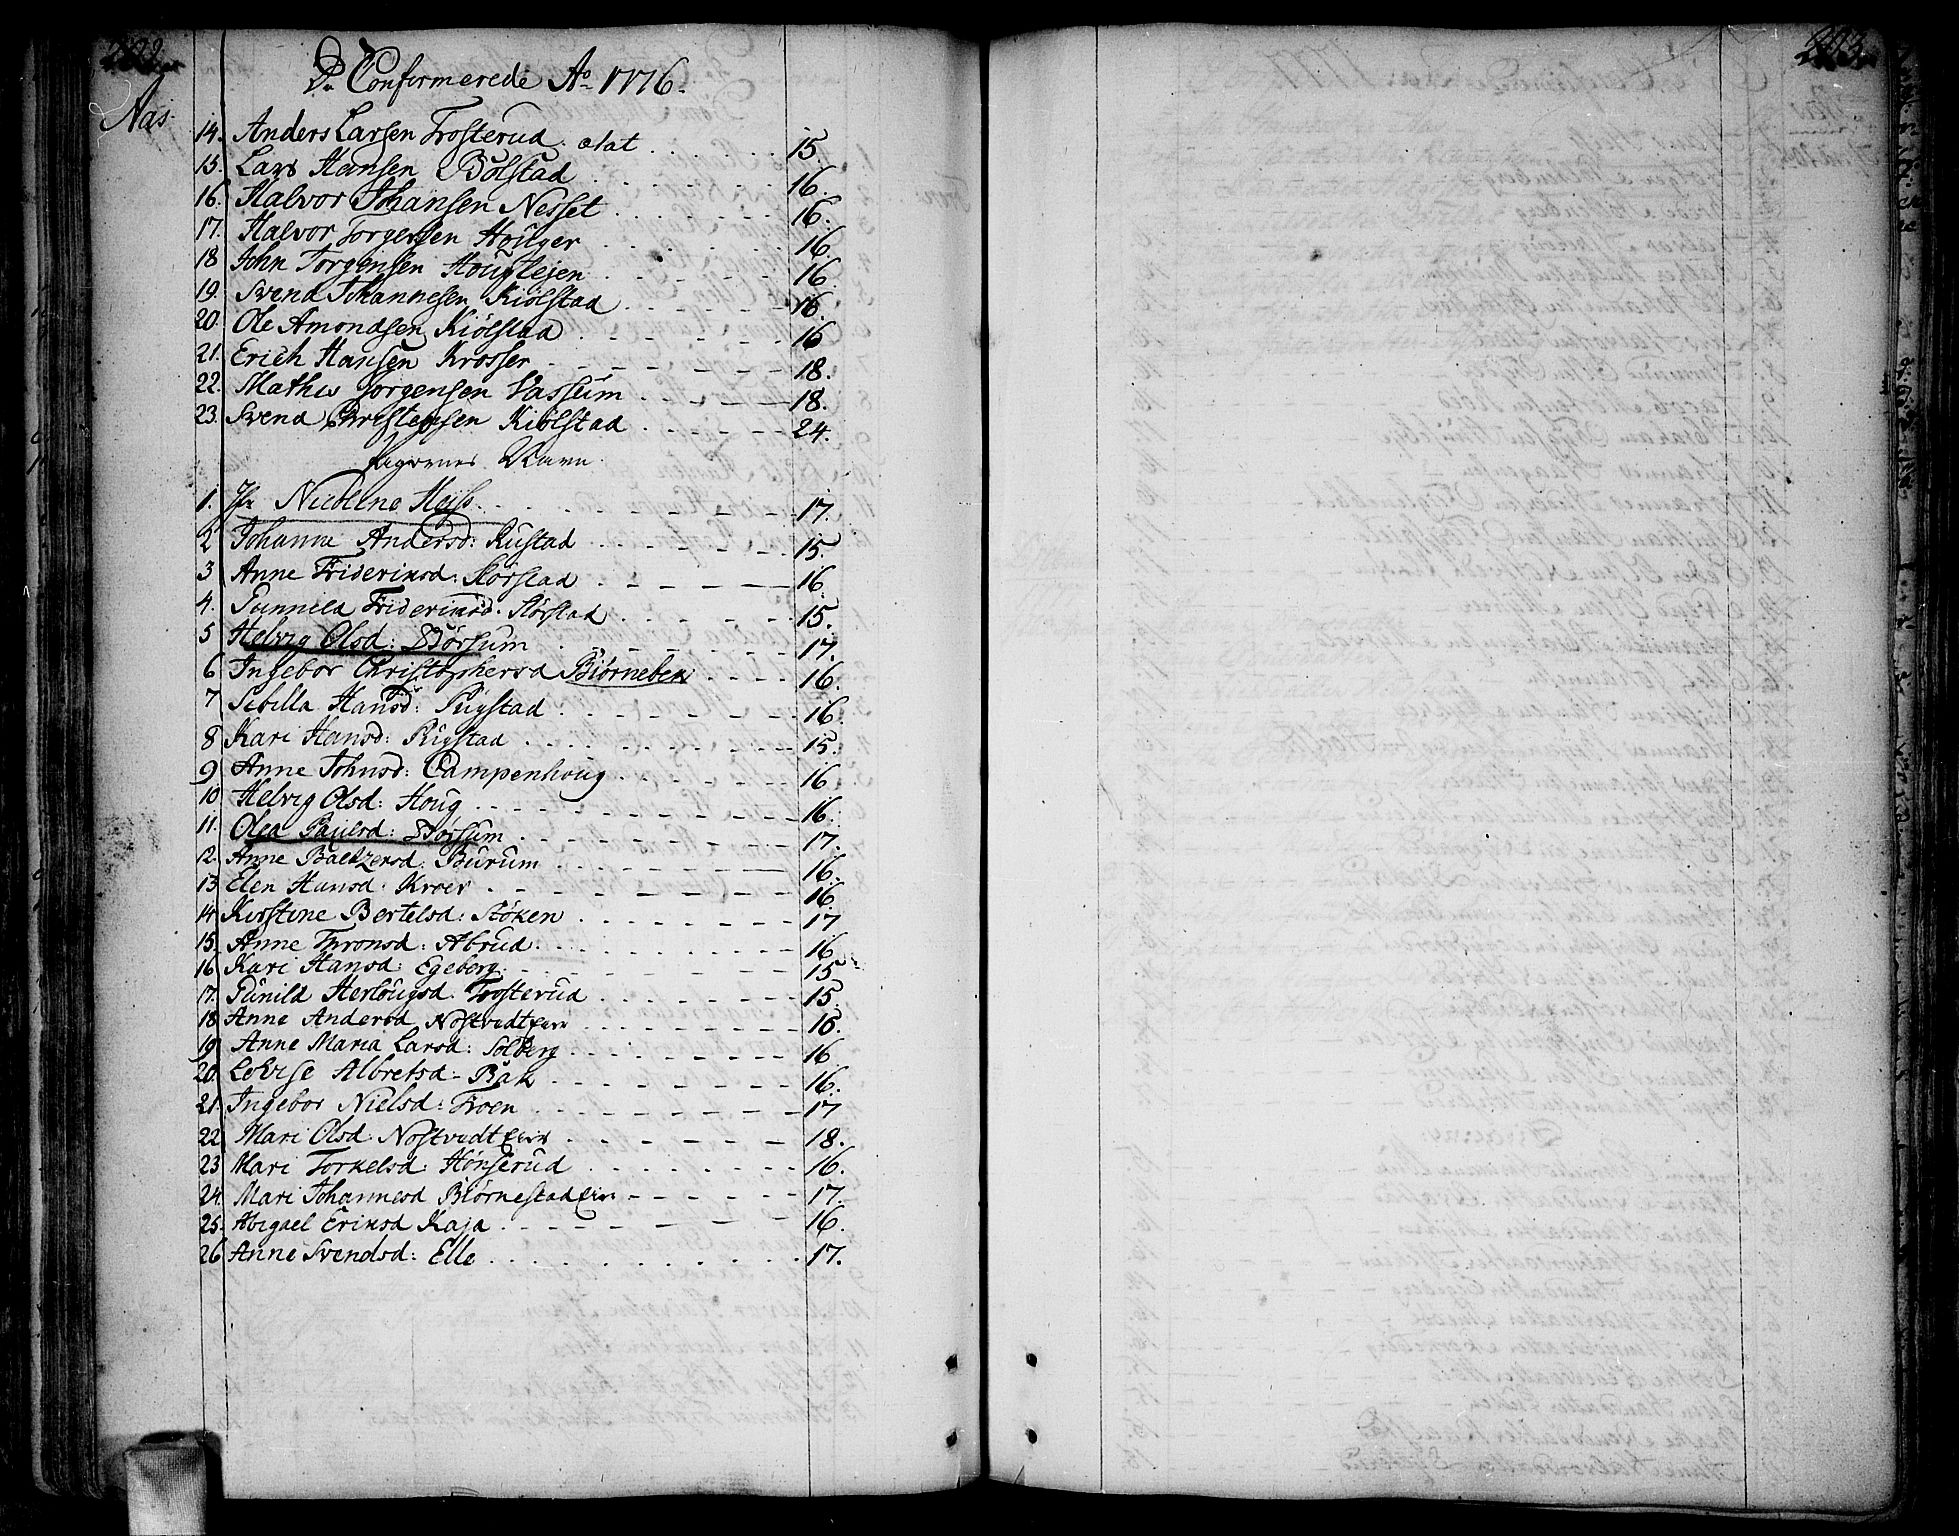 De Confirmerede Ao 1776.
Nas.
14. Anders Larsen Trosterud. ætat 15.
15. Lars Hansen Bölstad 16.
16. Halvor Johansen Nesset 16.
17. Halvor Torgersen Houger 16
18 John Torgensen 16
19. Svend Johannesen Kiölstad 16
20. Ole Amondsen Kiölstad 16
21. Erich Hansen Krosser 18.
22. Mathis Jorgensen Vassum 18.
23. Svend Christensen Kiölstad 24.
Pigernes Navn
1. Jfr Nicoline Heiss 17.
2 Johanne Andersd: Rustad 15.
3 Anne Fridericsd: Körstad 16.
4. Gunnild Fridericsd. 15.
5 Helvig Olsd: Börsum 17.
6 Ingebor Christophersd Biörnebek 16.
7 Sebilla Hansd: Rigstad 16
8 Kari Hansd: Rigstad 15.
9 Anne Johnsd: Campenhoug 16
10 Helvig Olsd: Houg 16.
11. Olea Paulsd: Börsum 17.
12. Anne Baltzersd: Burum 16.
13 Elen Hansd: Kroer 16
14 Kirstine Bertelsd: Stöken 17
15. Anne Thronsd: Abrud 16
16 Kari Hansd: Egeberg 15
17. Gunild Herlougsd. Trosterud 15.
18 Anne Andersd Nostvedt Eier 16.
19 Anne Maria Larsd: Solberg 16
20. Lovise Albretsd- Bak 16.
21. Ingebor Nielsd: Froen 17
22 Mari Olsd: Nostvedt Eier 18.
23 Mari Torkelsd: Hönserud 16.
24. Mari Johannesd Biörnestad Eier 17.
25. Abigael Ericsd Kaja 16.
26 Anne Svendsd: Elle 17.